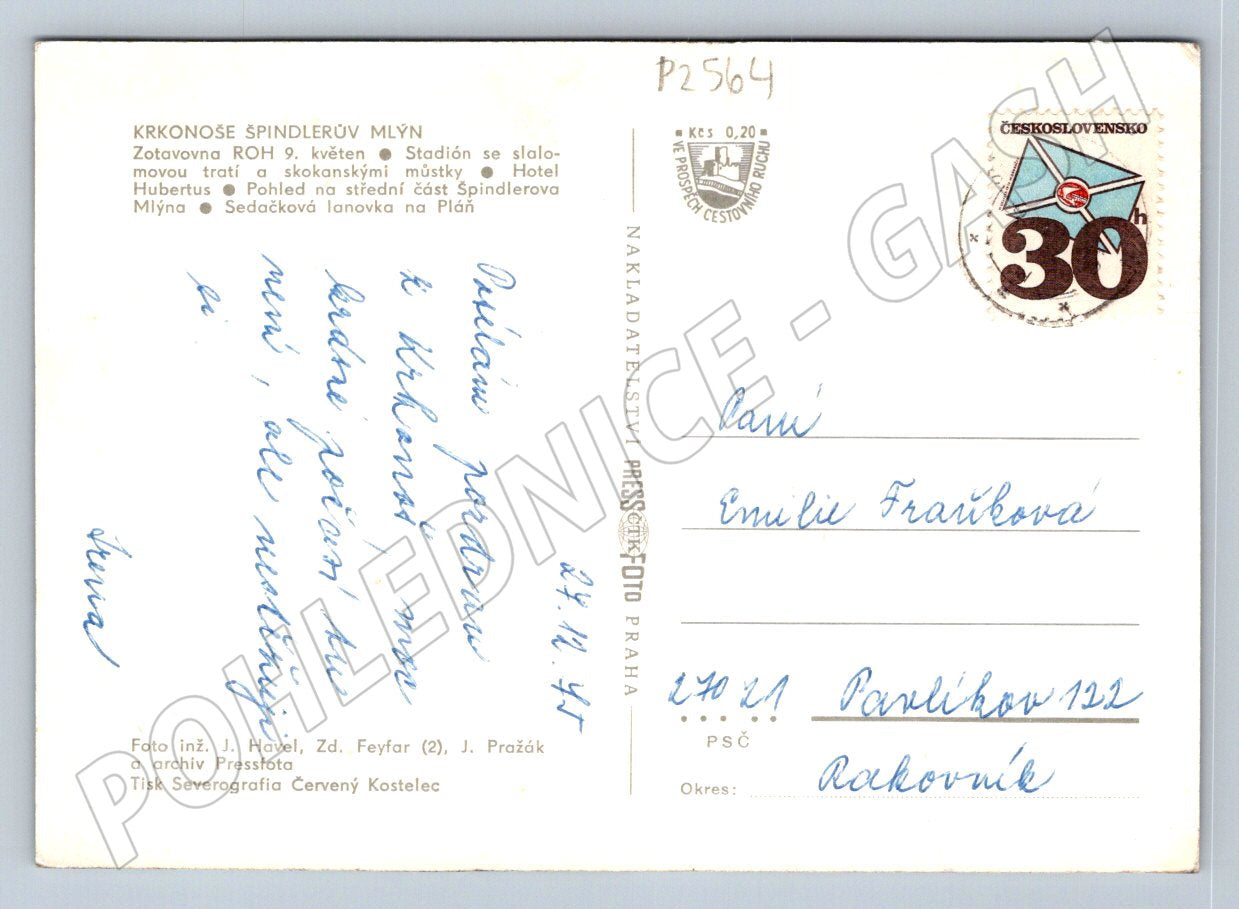 P2564
KRKONOŠE ŠPINDLERŮV MLÝN
Zotavovna ROH 9. květen ● Stadión se slalo-
movou tratí a skokanskými můstky ● Hotel
Hubertus ● Pohled na střední část Špindlerova
Mlýna ● Sedačková lanovka na Pláň
Kčs 0,20
VE PROSPĚCH CESTOVNÍHO RUCHU
ČESKOSLOVENSKO
30h
27.12.75
Posílám pozdrav
z Krkonoš, moc
krásné počasí tu
není, ale nestěžuji
si
Irena
NAKLADATELSTVÍ PRESSFOTO PRAHA
ČTK
Paní
Emilie Fraňková
270 21 Pavlíkov 122
PSČ
Okres: Rakovník
Foto inž. J. Havel, Zd. Feyfar (2), J. Pražák
a archiv Pressfota
Tisk Severografia Červený Kostelec
POHLEDNICE - GASH